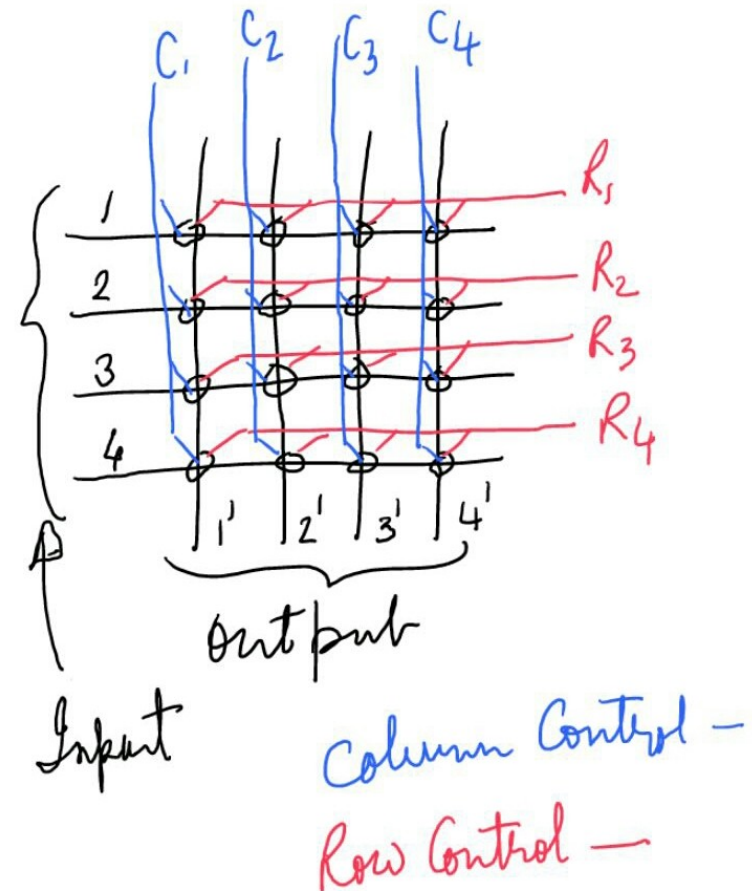 C1 C2 C3 C4
1 R1
2 R2
3 R3
4 R4
1' 2' 3' 4'
Output
Input
Column Control -
Row Control —